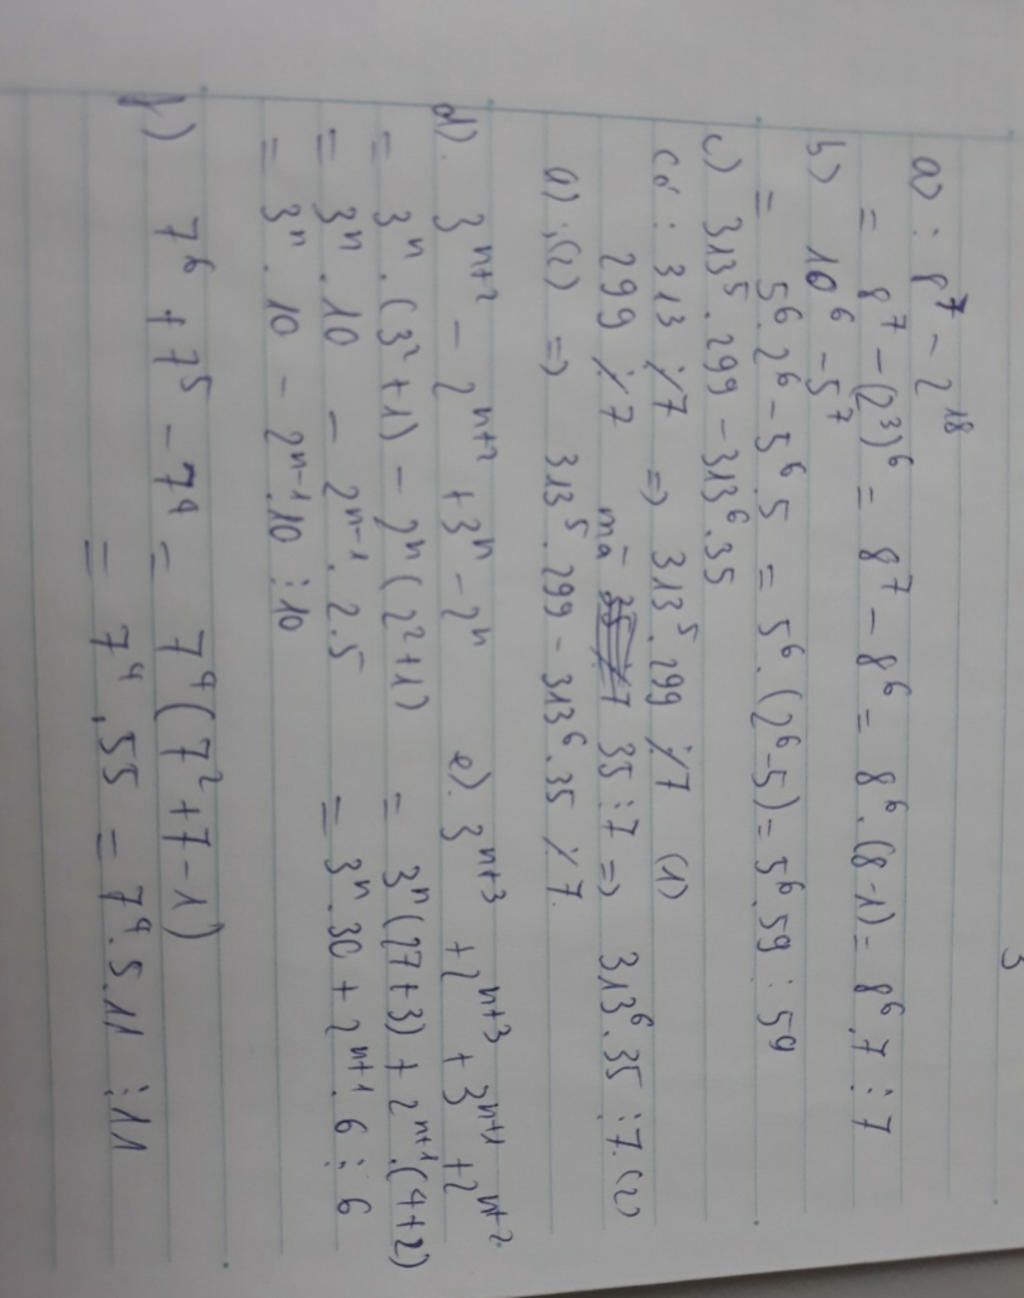 3
a) : 8⁷ - 2¹⁸
= 8⁷ - (2³)⁶ = 8⁷ - 8⁶ = 8⁶.(8-1) = 8⁶.7 ⋮ 7
b) 10⁶ - 5⁷
= 5⁶.2⁶ - 5⁶.5 = 5⁶.(2⁶-5) = 5⁶.59 ⋮ 59
c) 313⁵.299 - 313⁶.35
Có : 313 ⋮̸ 7 => 313⁵.299 ⋮̸ 7 (1)
299 ⋮̸ 7 mà 35 ⋮ 7 => 313⁶.35 ⋮ 7.(2)
(1);(2) => 313⁵.299 - 313⁶.35 ⋮̸ 7.
d). 3ⁿ⁺² - 2ⁿ⁺² + 3ⁿ - 2ⁿ
= 3ⁿ.(3²+1) - 2ⁿ(2²+1)
= 3ⁿ.10 - 2ⁿ⁻¹.2.5
= 3ⁿ.10 - 2ⁿ⁻¹.10 ⋮ 10
e). 3ⁿ⁺³ + 2ⁿ⁺³ + 3ⁿ⁺¹ + 2ⁿ⁺²
= 3ⁿ(27+3) + 2ⁿ⁺¹.(4+2)
= 3ⁿ.30 + 2ⁿ⁺¹.6 ⋮ 6
f) 7⁶ + 7⁵ - 7⁴ = 7⁴(7²+7-1)
= 7⁴.55 = 7⁴.5.11 ⋮ 11